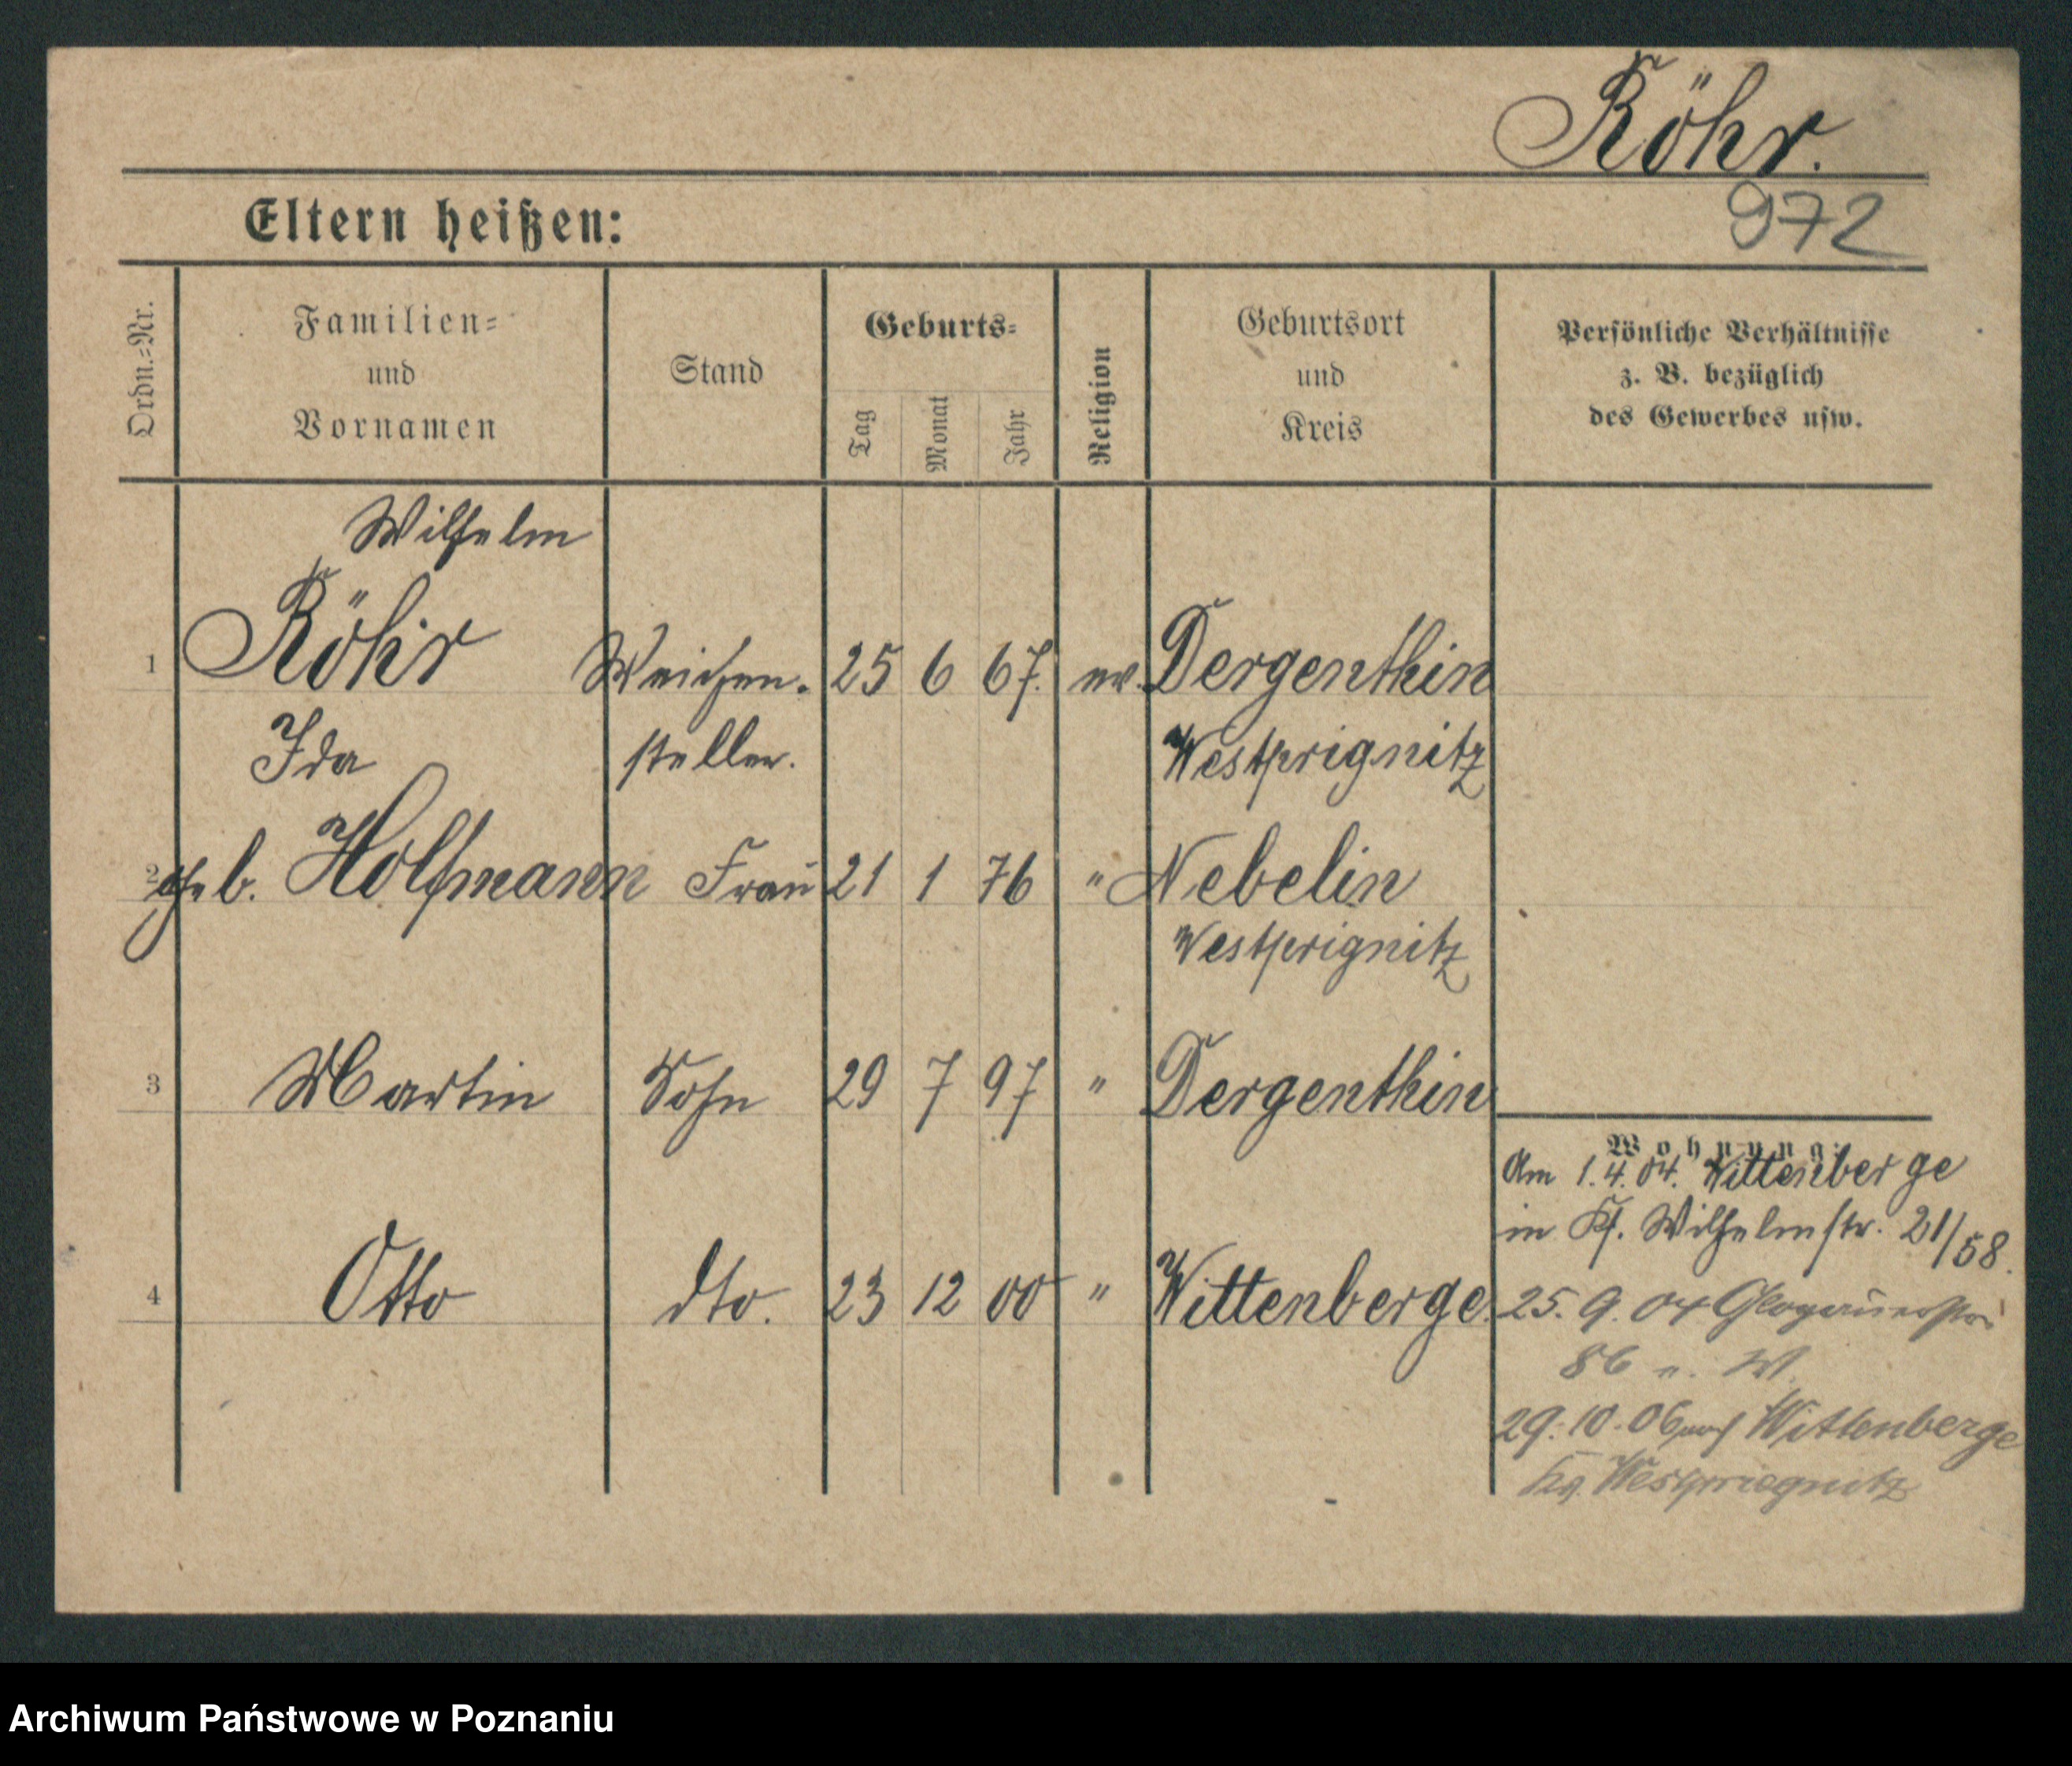 Röhr.
972
Eltern heißen:
Ordn.-Nr.
Familien- und Vornamen
Stand
Geburts-
Tag
Monat
Jahr
Religion
Geburtsort und Kreis
Persönliche Verhältnisse
z. B. bezüglich
des Gewerbes usw.
Wilhelm
1 Röhr Weichen- 25 6 67. ev. Dergenthin
Ida steller. Westprignitz
2 geb. Holfmann Frau 21 1 76 " Nebelin
Westprignitz
3 Martin Sohn 29 7 97 " Dergenthin
Wohnung:
Am 1.4.04. Wittenberge
in Kf. Wilhelmstr. 21/58.
4 Otto dto. 23 12 00 " Wittenberge.
25. 9. 04 Glogauerstr.
86 n. W.
29.10.06 nach Wittenberge
Kr. Westpriegnitz
Archiwum Państwowe w Poznaniu